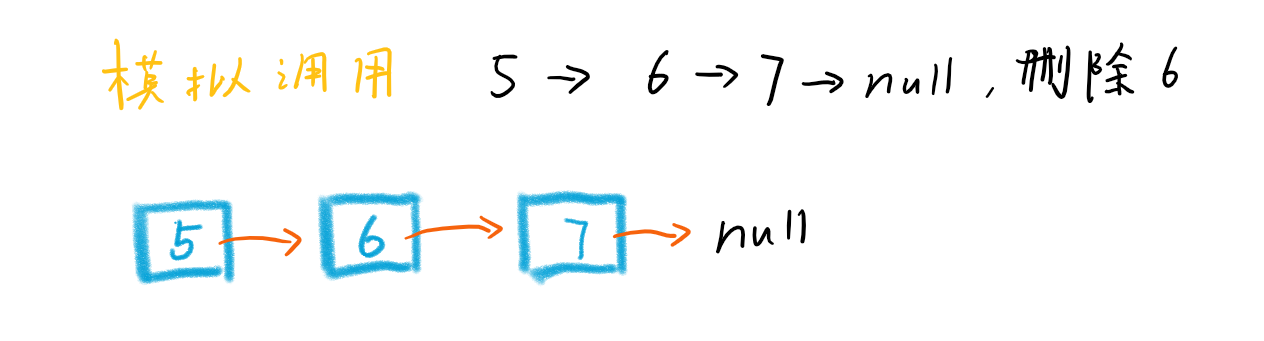 模拟调用 5 → 6 → 7 → null, 删除 6
5 → 6 → 7 → null